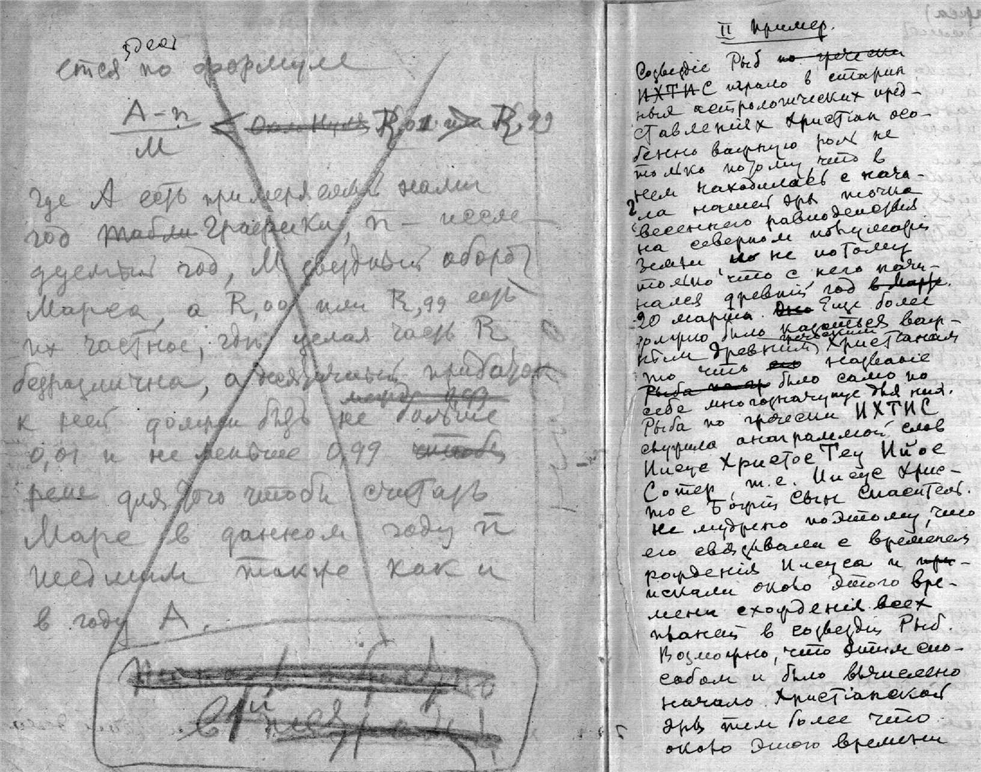 ется по формуле
A-n
M
R,99
где А есть
год Графики, n — иссле-
дуемый год, М звездный оборот
Марса, а R,00 или R,99 есть
их частное, где целая часть R
безразлична, а десятичный придаток
к ней должен быть не больше
0,01 и не меньше 0,99
для того чтоби считать
Марс в данном году n
также как и
в году А.
II Пример.
Созвездіе Рыб по гречески
ИХТИС играло в старин
ных астрологических пред-
ставленіях Христіан осо-
бенно важную роль не
только потому что в
нем находилась с нача-
ла нашей эры точка
весенняго равноденствія
на северном полушаріи
Земли но не потому
только что с него начи-
нался древній год в Марте
20 марта. Еще более
должно было казаться важ-
ным древним Христіанам
то что его названіе
Рыба было само по
себе многозначуще для них.
Рыба по гречески ИХТИС
служила анаграммой слов
Иисус Христос Теу Ийос
Сотер, т.е. Иисус Хрис-
тос Божій Сын Спаситель.
Не мудрено поэтому, что
его связывали с временем
рожденія Иисуса и при-
искали около этого вре-
мени схожденія всех
планет в созвездіи Рыб.
Возможно, что этим спо-
собом и было вычислено
начало Христіанской
эры тем более что
около этого времени